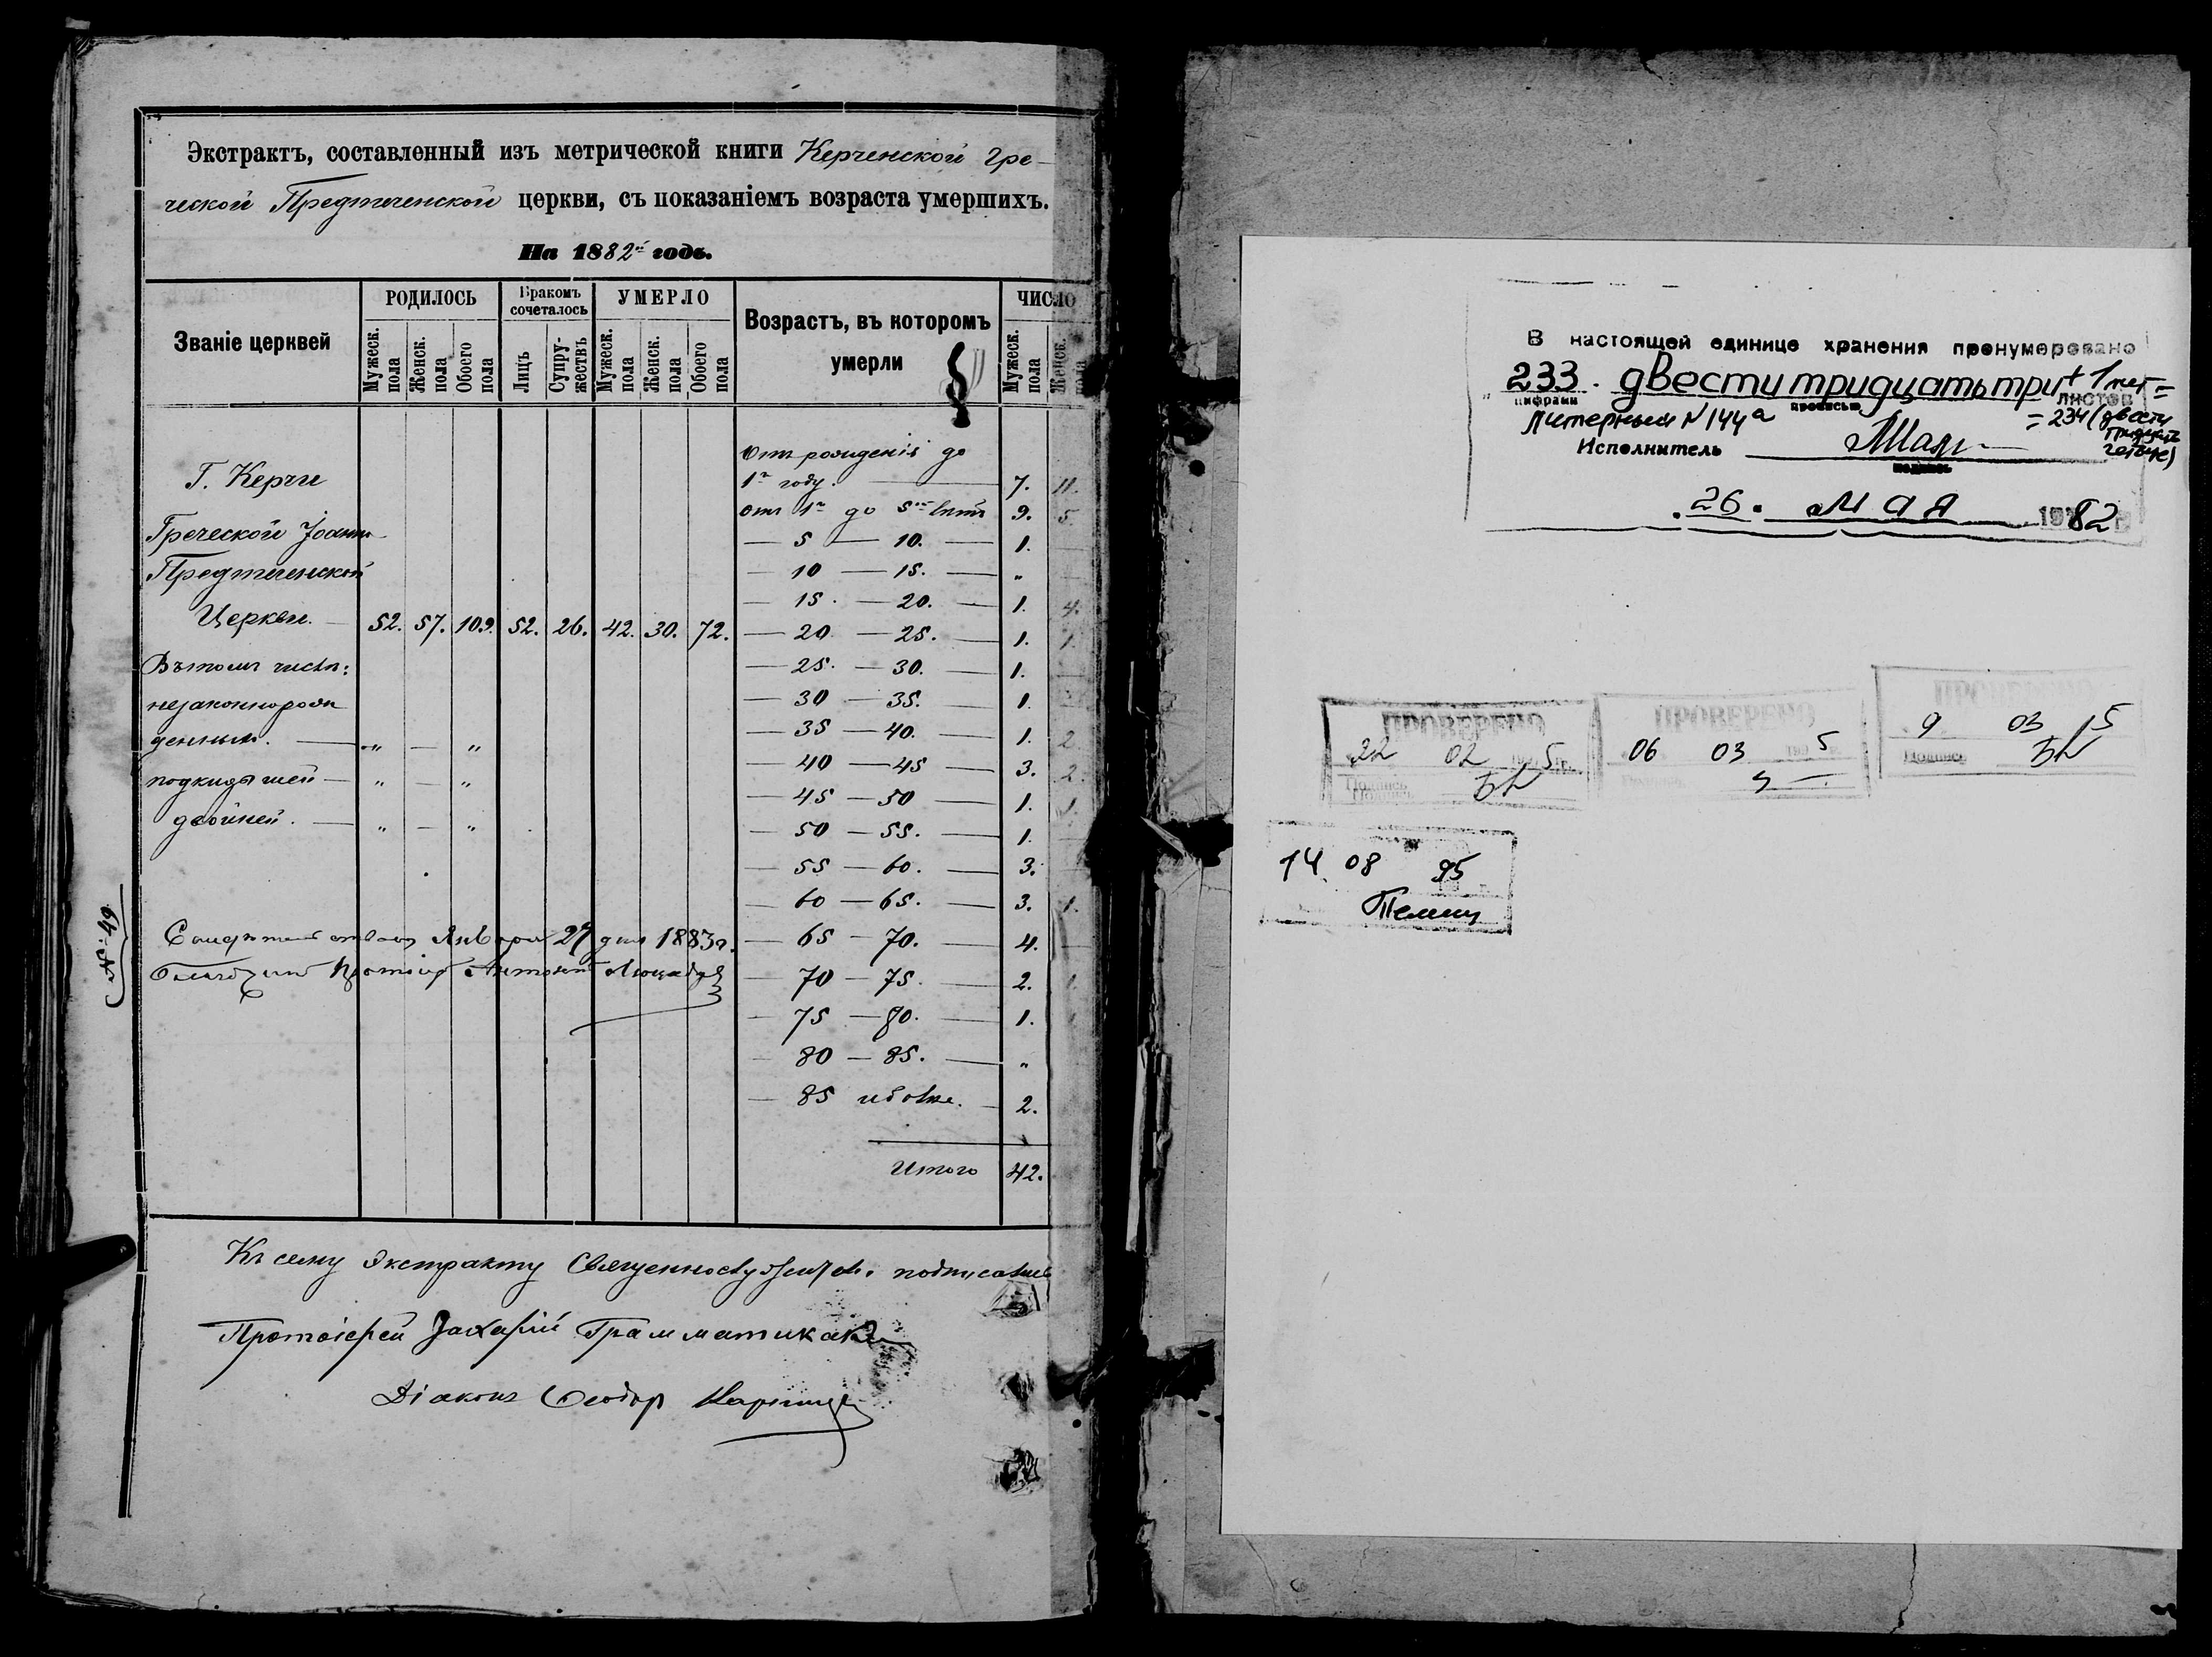 Экстрактъ, составленный изъ метрической книги Керченской Гре-
ческой Предтеченской церкви, съ показаніемъ возраста умершихъ.
На 1882й годъ.
Званіе церквей
РОДИЛОСЬ
Мужеск. пола
Женск. пола
Обоего пола
Бракомъ сочеталось
Лицъ
Супру-жествъ
УМЕРЛО
Мужеск. пола
Женск. пола
Обоего пола
Возрастъ, въ которомъ
умерли
ЧИСЛО
Мужеск. пола
Женск. пола
Г. Керчи
Греческой Іоанно-
Предтеченской
Церкви. 52. 57. 109. 52. 26. 42. 30. 72.
Въ томъ числѣ:
незаконнорож
денныхъ. — „ — „
подкидышей — „ — „
двойней. — „ — „
Отъ рожденія до
1го году. — 7. 11.
отъ 1го до 5ти лѣтъ 9. 5.
— 5 — 10. — 1.
— 10 — 15. — „
— 15. — 20. — 1. 4.
— 20 — 25. — 1. 1.
— 25. — 30. — 1.
— 30 — 35. — 1.
— 35 — 40. — 1. 2.
— 40 — 45 — 3. 2.
— 45 — 50 — 1. 1.
— 50 — 55. — 1.
— 55 — 60. — 3.
— 60 — 65. — 3. 1.
— 65 — 70. — 4.
— 70 — 75. — 2. 1.
— 75 — 80. — 1.
— 80 — 85. — „
— 85 и болѣе. — 2.
Итого 42.
Января 27 дня 1883 г.
Антоній
№ 49
Къ сему Экстракту подписались
Протоіерей Захарій Грамматикаки
Діаконъ Ѳеодоръ
В настоящей единице хранения пронумеровано
233. двести тридцать три + 1 лит =
цифрами прописью листов
Литерный N 144а = 234 (двести
тридцать
четыре)
Исполнитель
подпись
26. мая 1982 г.
ПРОВЕРЕНО
22 02 5 г.
Подпись
ПРОВЕРЕНО
06 03 5
ПРОВЕРЕНО
9 03 5
Подпись
14 08 95